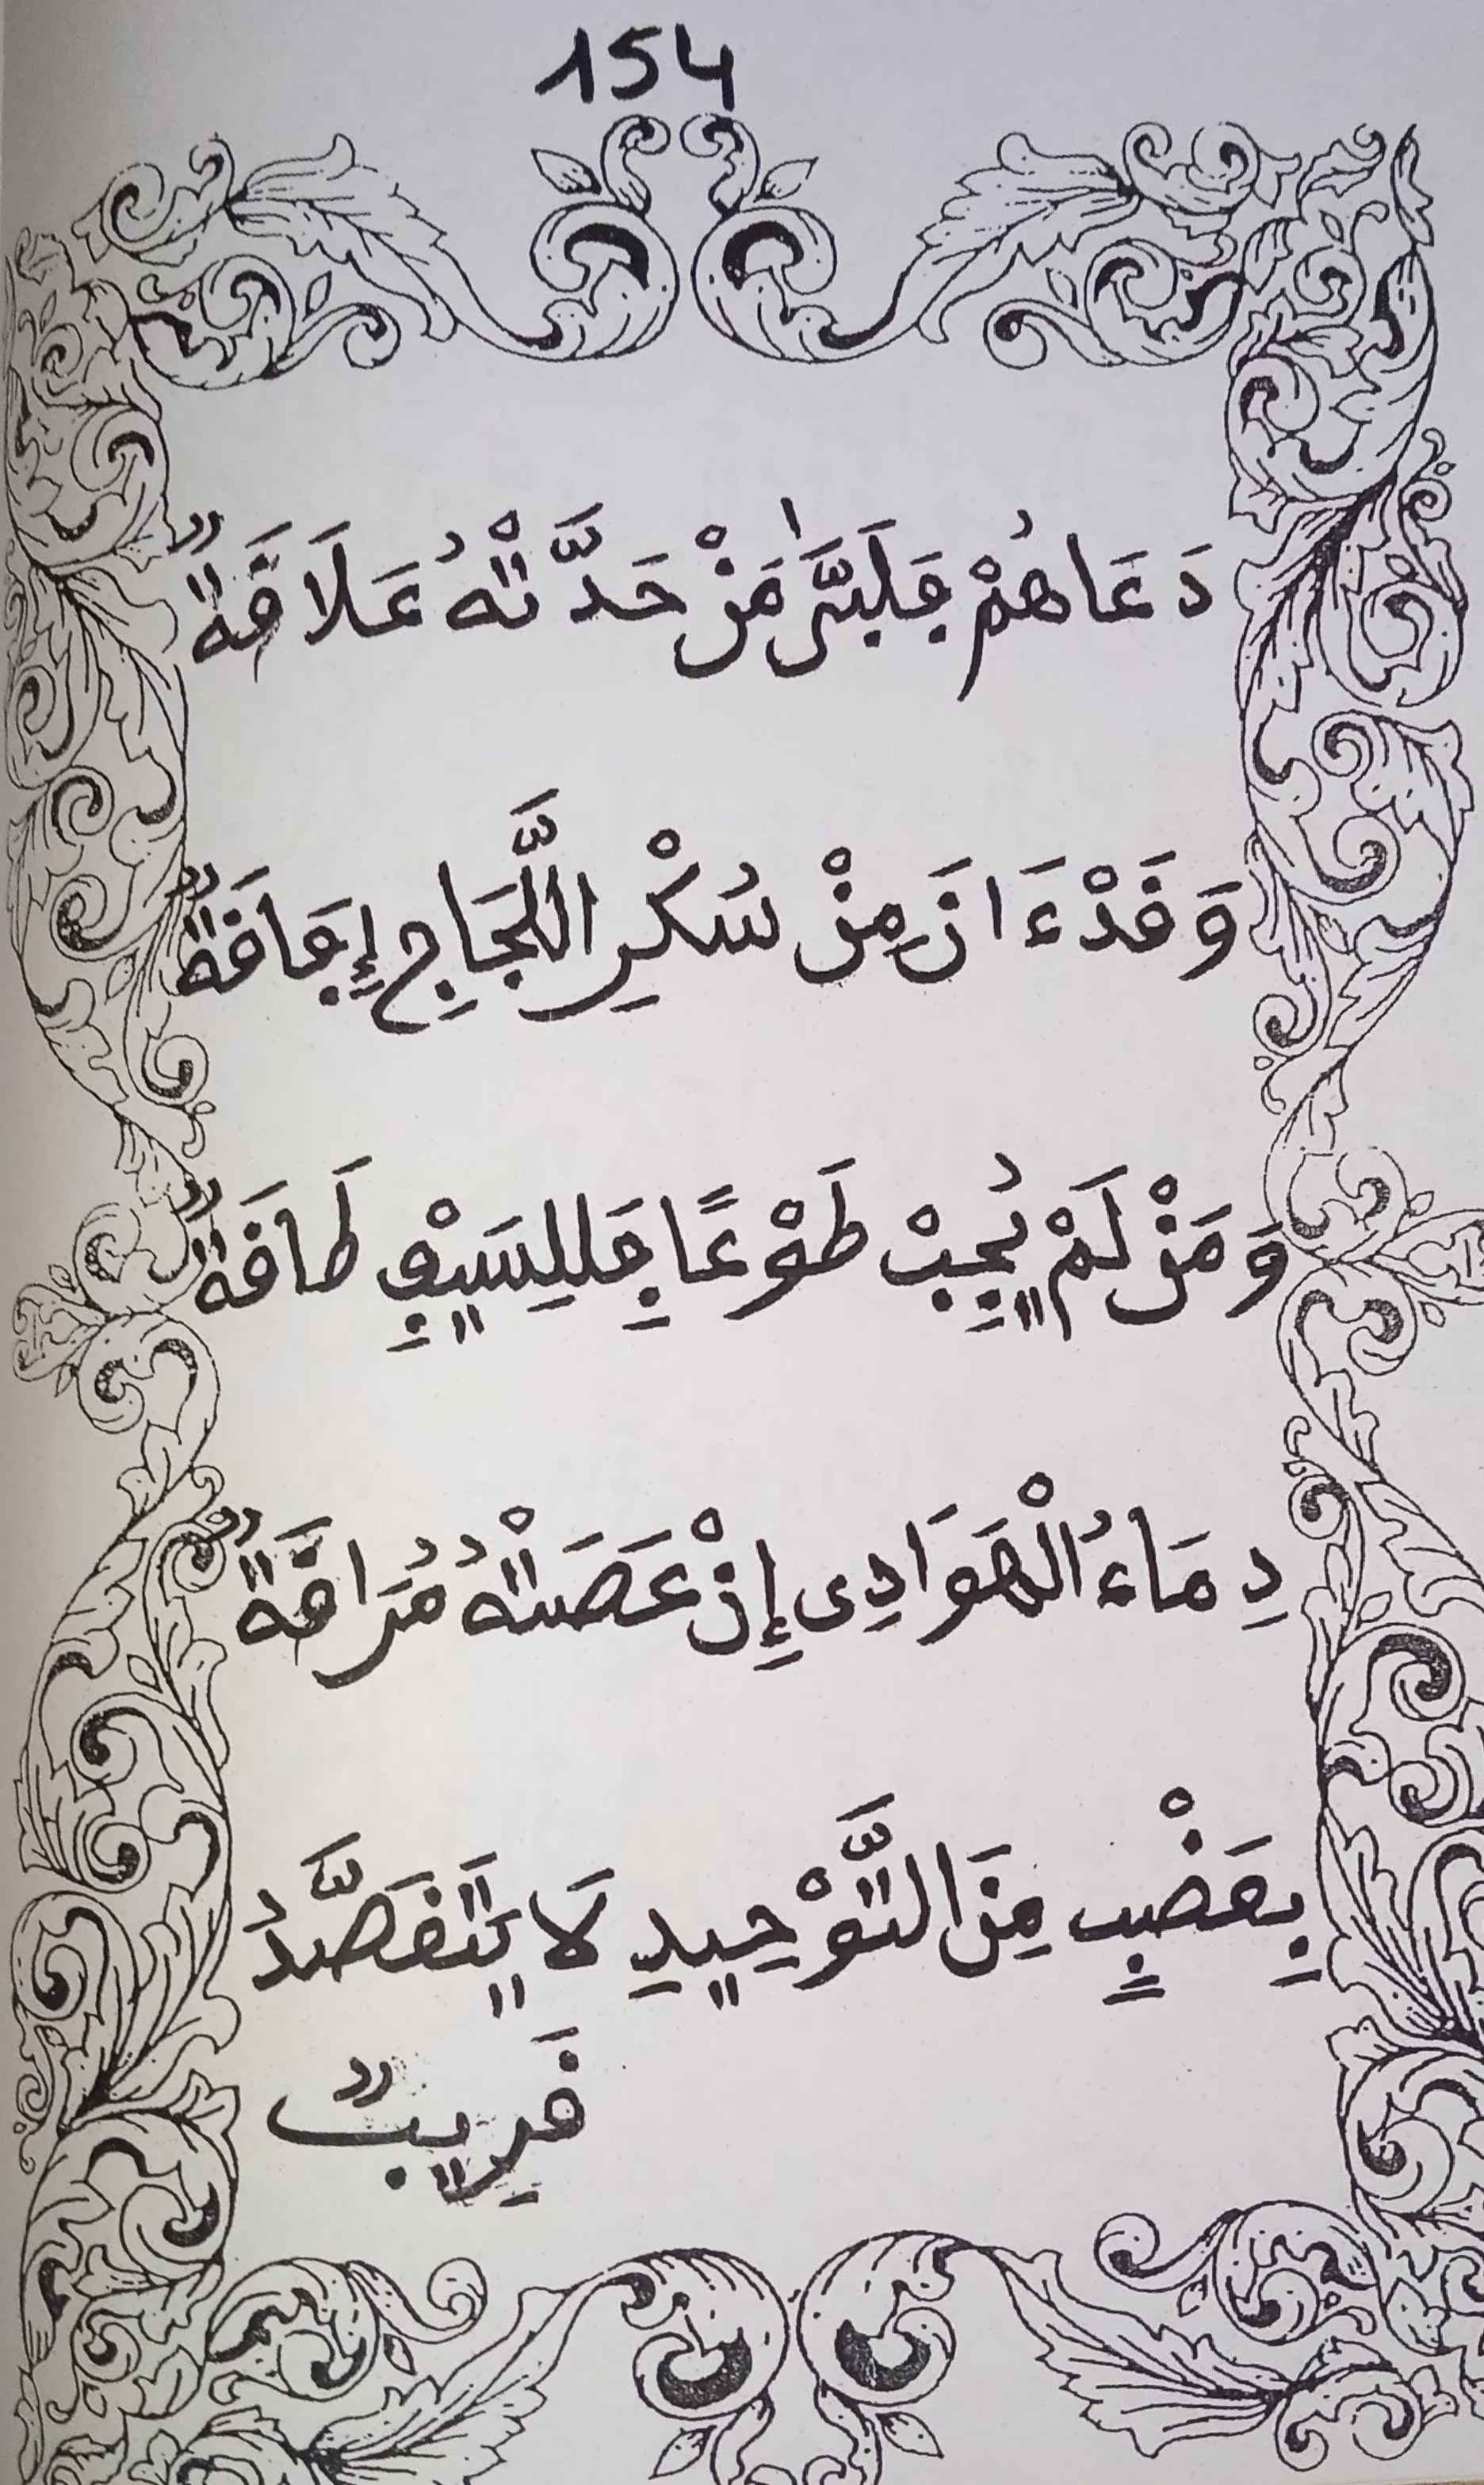 154
دَعَاهُمْ فَلَبَّىٰ مَنْ حَدَّتْهُ عَلَاقَةٌ
وَقَدْ ءَانَ مِنْ سُكْرِ اللَّجَاجِ إِفَاقَةٌ
وَمَنْ لَمْ يُجِبْ طَوْعًا فَلِلسَيْفِ طَاقَةٌ
دِمَاءُ الْهَوَادِى إِنْ عَصَتْهُ مُرَاقَةٌ
بِعَضْبٍ مِنَ التَّوْحِيدِ لَا يَتَقَصَّدُ
قَرِيبٌ